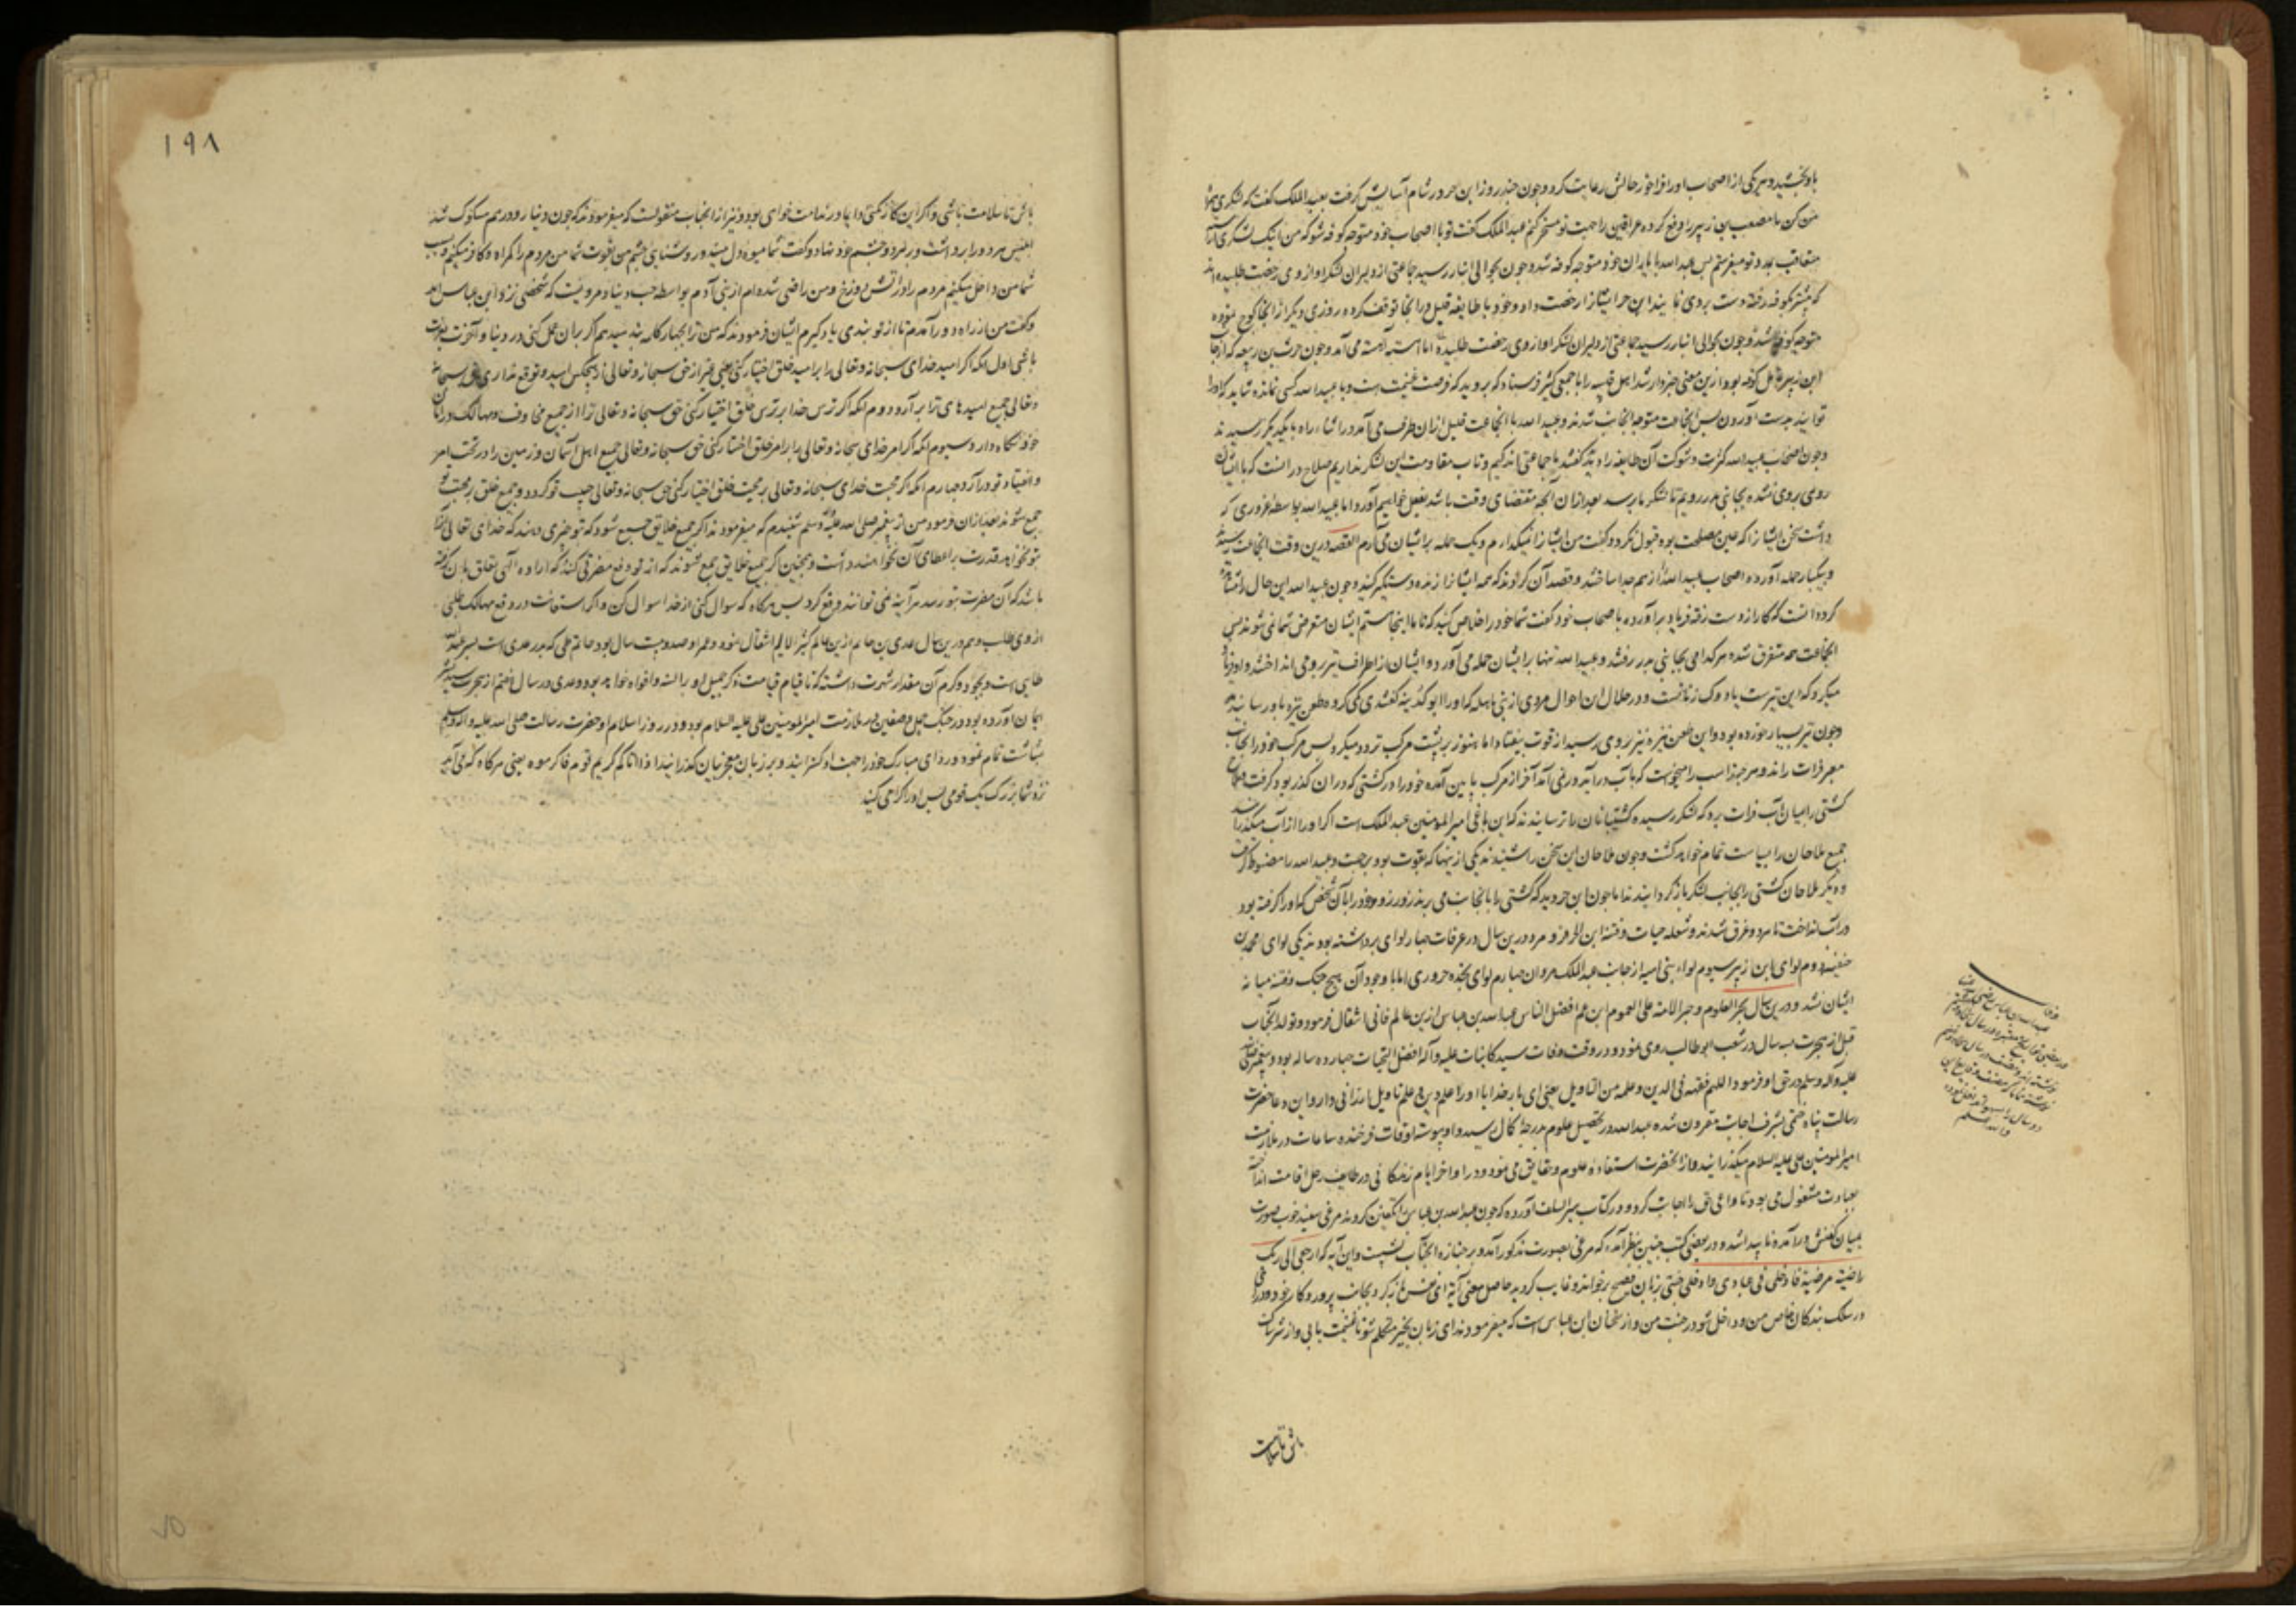 باو بخشید و هر یکی از اصحاب او را فراخور حالش رعایت کرد و چون چند روز ابن حر در شام آسایش گرفت بعبد الملک گفت که لشکری همراه
من کن تا مصعب بن زبیر را دفع کرده عراقین را جهت تو مسخر کنم عبد الملک گفت تو با اصحاب خود متوجه کوفه شو که من اینک لشکری از
متعاقب بمدد تو میفرستم پس عبد الله با یاران خود متوجه کوفه شد و چون بحوالی انبار رسید جماعتی از دلیران لشکر او از وی رخصت طلبیدند
که پیشتر بکوفه رفته روی نمایند ابن حر ایشانرا رخصت داد و خود با طایفه قلیل در انجا توقف کرده روزی دیگر از انجا کوچ نموده
متوجه کوفه شد و چون بحوالی انبار رسید جماعتی از دلیران لشکر او از وی رخصت طلبیده اما آهسته آهسته می آمد و چون حرث بن ربیعه که از جانب
ابن زبیر عامل کوفه بود ازین معنی خبردار شد اهل قیسه را با جمعی کثیر فرستاد که بروید که فرصت غنیمت است و با عبید الله کسی نمانده شاید که او را
توانید بدست آوردن پس انجماعت متوجه انجانب شدند و عبید الله با انجماعت قلیل از ان طرف می آمد در اثناء راه بیکدیگر رسیدند
و چون اصحاب عبید الله کثرت و شوکت آن طایفه را دیدند گفتند ما جماعتی اندکیم و تاب مقاومت این لشکر نداریم صلاح در انست که با ایشان
روی بروی نشده بجانبی بدر رویم تا لشکر ما برسد بعد از ان آنچه مقتضای وقت باشد بفعل خواهیم آورد اما عبید الله بواسطه غروری که
داشت سخن ایشانرا که عین مصلحت بود قبول نکرد و گفت من ایشانرا نمیگذارم و یک حمله بر ایشان می آرم القصه درین وقت انجماعت رسیدند
و بیکبار حمله آورده اصحاب عبید الله را از هم جدا ساختند و قصد آن کردند که همه ایشانرا زنده دستگیر کنند و چون عبید الله این حال را مشاهده
کرد دانست که کار از دست رفته فریاد برآورده باصحاب خود گفت شما خود را خلاص کنید که تا ما اینجا ستم ایشان متعرض شما نمی شوند پس
انجماعت همه متفرق شده هر کدامی بجانبی بدر رفتند و عبید الله تنها بر ایشان حمله می آورد و ایشان از اطراف تیر برو می انداختند و او فریاد
میکرد که این تیرست یا دوک زنانست و در خلال این احوال مردی از بنی باهله که او را ابو کدینه گفتندی طعن نیزه باو رسانید
و چون تیر بسیار خورده بود و این طعن نیزه نیز بروی رسید از قوت بیفتاد اما هنوز بر پشت مرکب تردد میکرد پس مرکب خود را بجانب
معبر فرات راند و هر چند اسب را میخواست که بآب درآید در نمی آمد آخر از مرکب پایین آمده خود را در کشتی که در ان گذر بود گرفت ملاح
کشتی را بمیان آب فرات برد که لشکر رسیده کشتیبانان را ترسانیدند که این یاغی امیر المومنین عبد الملک است اگر او را از آب میگذرانید
جمیع ملاحان را سیاست تمام خواهد گشت و چون ملاحان این سخن را شنیدند یکی از اینها که بقوت بود برجست و عبد الله را مضبوط گرفت
و دیگر ملاحان کشتی را بجانب لشکر بازگردانیدند اما چون ابن حر دید که کشتی را بانجانب می برند زور زده خود را با آن شخص که او را گرفته بود
در آب انداخت تا هر دو غرق شدند و شعله حیات و فتنه ابن الحر فرو مرد و درین سال در عرفات چهار لوای برداشته بودند یکی لوای محمد بن
حنفیه دوم لوای ابن زبیر سیوم لواء بنی امیه از جانب عبد الملک مروان چهارم لوای نجده حروری اما با وجود آن هیچ جنگ و فتنه میانه
ایشان نشد و درین سال بحر العلوم و حبر الامه علی العموم ابن عم افضل الناس عبد الله بن عباس ازین عالم فانی انتقال فرمود و تولد انجناب
قبل از هجرت بسه سال در شعب ابو طالب روی نمود و در وقت وفات سید کاینات علیه و آله افضل التحیات چهارده ساله بود و پیغمبر صلی الله
علیه و آله و سلم در حق او فرمود اللهم فقهه فی الدین و علمه من التاویل یعنی ای بار خدایا او را علم دین و علم تاویل ارزانی دار و این دعا حضرت
رسالت پناه ختمی بشرف اجابت مقرون شده عبد الله در تحصیل علوم بدرجه کمال رسید و او پیوسته اوقات فرخنده ساعات در ملازمت
امیر المومنین علی علیه السلام میگذرانید و از انحضرت استفاده علوم و حقایق می نمود و در اواخر ایام زندگانی در طایف رحل اقامت انداخته
بعبادت مشغول می بود تا داعی حق را اجابت کرد و در کتاب سیر السلف آورده که چون عبد الله بن عباس را تکفین کردند مرغی سفید خوب صورت
بمیان کفنش درآمده ناپیدا شد و در بعضی کتب چنین بنظر آمده که مرغی بصورت مذکور آمد و بر جنازه انجناب نشست و این آیه که ارجعی الی ربک
راضیة مرضیة فادخلی فی عبادی وادخلی جنتی بزبان فصیح برخواند و غایب گردید حاصل معنی آیه ای نفس بازگرد بجانب پروردگار خود و درآی
در سلک بندگان خاص من و داخل شو در جنت من و از سخنان ابن عباس است که میفرمودند ای زبان بخیر متکلم شو تا غنیمت یابی و از شر ساکت
باش تا سلامت
وفات
عبد الله بن عباس رضی الله عنه
در بعضی تواریخ معتبره در سال
والله اعلم
۱۹۸
باش تا سلامت باشی و اگر این کار نکنی دایما در ندامت خواهی بود و نیز از انجناب منقولست که میفرمودند که چون دینار و درهم مسکوک شد
ابلیس هر دو را برداشت و بر هر دو چشم خود نهاد و گفت شما میوه دل منید و روشنایی چشم من بقوت شما من مردم را گمراه و کافر میکنم و بسبب
شما من داخل میکنم مردم را در آتش دوزخ و من راضی شده ام از بنی آدم بواسطه حب دنیا و مرویست که شخصی نزد ابن عباس آمد
و گفت من از راه دور آمدم تا از تو پندی یاد گیرم ایشان فرمودند که من ترا بچهار کار پند میدهم اگر بران عمل کنی در دنیا و آخرت بعزت
باشی اول آنکه اگر امید خدای سبحانه و تعالی را بر امید خلق اختیار کنی یعنی بغیر از حق سبحانه و تعالی از هیچکس امید و توقع نداری حق سبحانه
و تعالی جمیع امیدهای ترا برآرد دوم آنکه اگر ترس خدا بر ترس خلق اختیار کنی حق سبحانه و تعالی ترا از جمیع مخاوف و مهالک در امان
خود نگاه دارد و سیوم آنکه اگر امر خدای سبحانه و تعالی را بر امر خلق اختیار کنی حق سبحانه و تعالی جمیع اهل آسمان و زمین را در تحت امر
و انقیاد تو درآرد چهارم آنکه اگر محبت خدای سبحانه و تعالی بر محبت خلق اختیار کنی حق سبحانه و تعالی حبیب تو گردد و جمیع خلق بر محبت تو
جمع شوند بعد از ان فرمود من از پیغمبر صلی الله علیه و سلم شنیدم که میفرمودند اگر جمیع خلایق جمع شوند که بتو چیزی دهند که خدای تعالی آنرا
بتو نخواهد قدرت بر اعطای آن نخواهند داشت و همچنین اگر جمیع خلایق جمع شوند که از تو دفع مضرتی کنند که اراده الهی متعلق بان گرفته
باشد که آن مضرت بتو رسد هرآینه نمی توانند دفع کرد پس هرگاه که سوال کنی از خدا سوال کن و اگر استعانت در دفع مهالک طلبی
از وی طلب و هم درین سال عدی بن حاتم ازین عالم کثیر الالم انتقال نمود و عمر او صد و بیست سال بود حاتم طی که پدر عدی است پسر عبد الله
طایی است و بجود و کرم آن مقدار شهرت داشته که تا قیام قیامت ذکر جمیل او بر السنه و افواه خواهد بود و عدی در سال هفتم از هجرت
ایمان آورده بود و در جنگ جمل و صفین در ملازمت امیر المومنین علی علیه السلام بود و در روز اسلام او حضرت رسالت صلی الله علیه و آله و سلم
بشاشت تمام نمود و ردای مبارک خود را جهت او گسترانید و بر زبان معجز بیان گذرانید اذا اتاکم کریم قوم فاکرموه یعنی هرگاه که می آید
نزد شما بزرگ یک قومی پس او را گرامی کنید